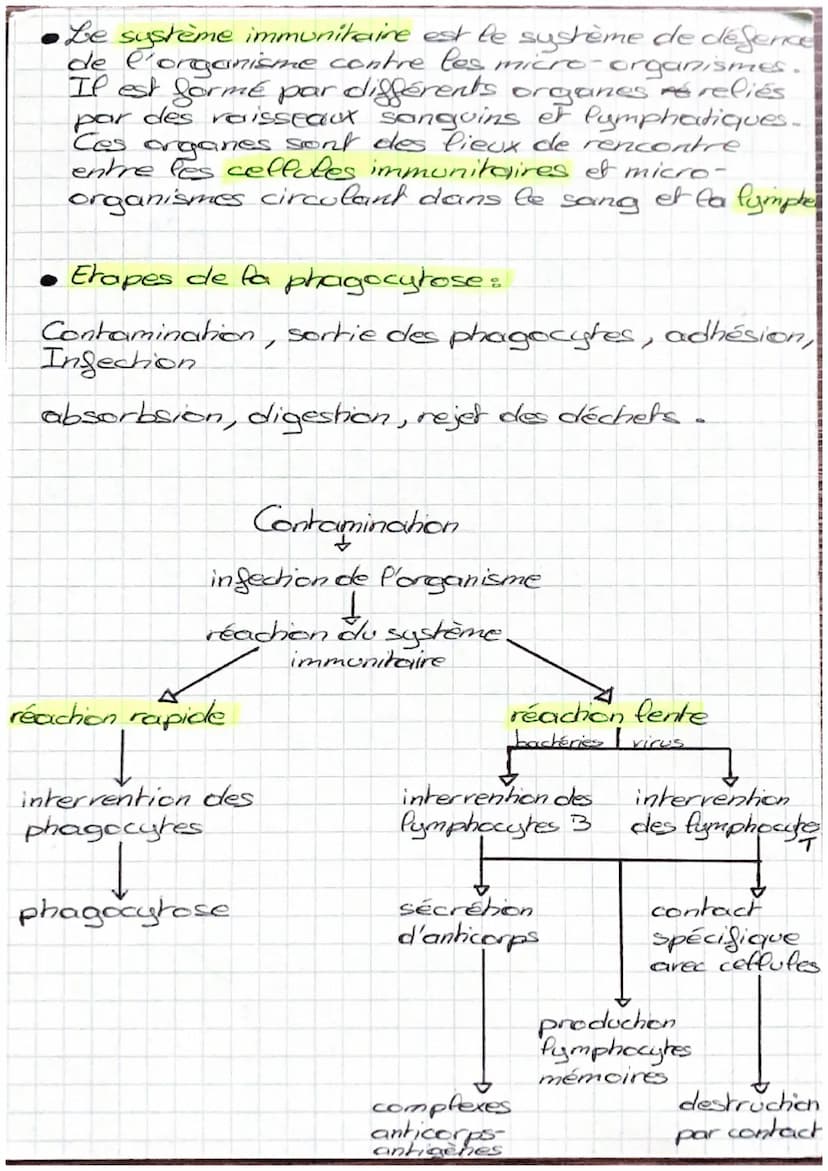 • Le système immunitaire est le système de défence
de l'organisme contre les micro-organismes.
Il est formé par différents organes reliés
par des vaisseaux sanguins et lymphatiques.
Ces organes sont des lieux de rencontre
entre les cellules immunitaires et micro-
organismes circulant dans le sang et la lymphe
• Etapes de la phagocytose :
Contamination, sortie des phagocytes, adhésion,
Infection
absorbsion, digestion, rejet des déchets.
Contamination
infection de l'organisme
réaction du système
immunitaire
réaction rapide
intervention des
phagocytes
phagocytose
réaction lente
bactéries virus
intervention des
lymphocytes B
intervention
des lymphocytes
T
sécrétion
d'anticorps
contact
spécifique
avec cellules
production
lymphocytes
mémoires
complexes
anticorps-
antigènes
destruction
par contact